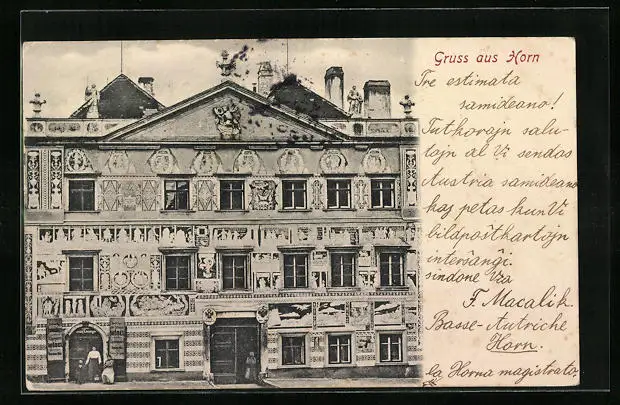 Gruss aus Horn
Tre estimata
samideano!
Tutkorajn salu-
tojn al Vi sendas
Austria samideano
kaj petas kun Vi
bildpoŝtkartojn
interŝanĝi.
sindone Via
F. Macalik
Basse-Autriche
Horn.
ĉe Horna magistrato